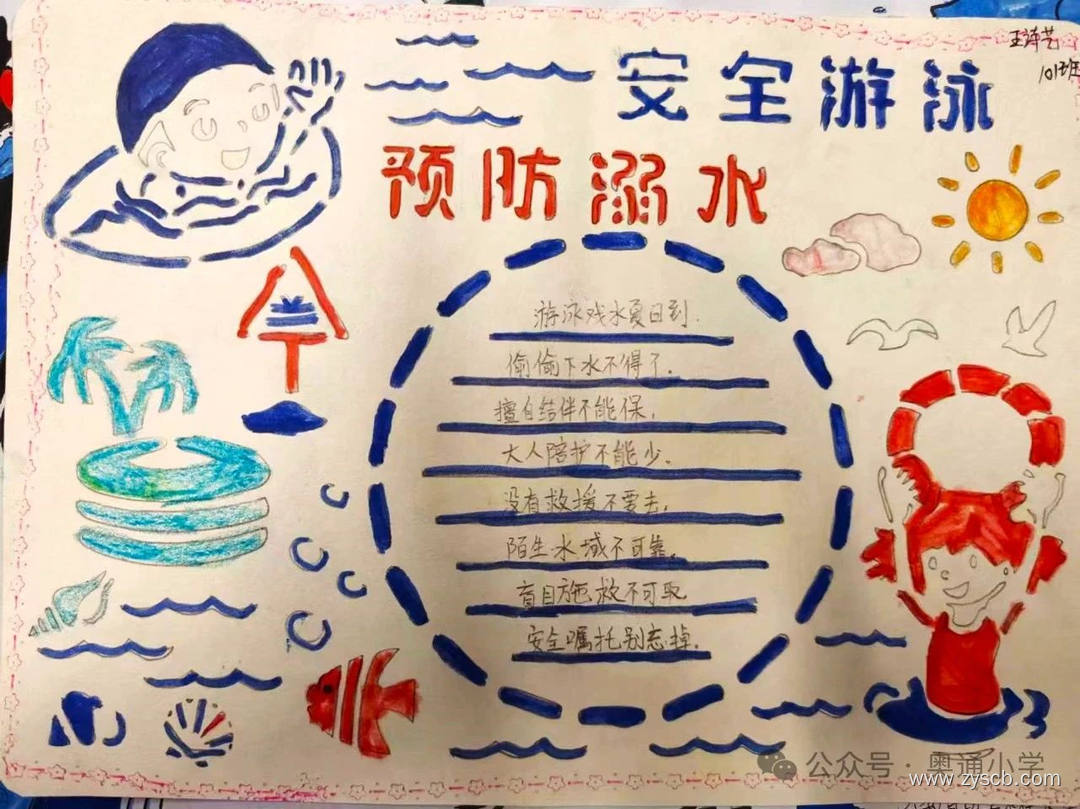 王译艺
101班
安全游泳
预防溺水
游泳戏水夏日到.
偷偷下水不得了.
擅自结伴不能保.
大人陪护不能少.
没有救援不要去.
陌生水域不可靠.
盲目施救不可取
安全嘱托别忘掉.
公众号·奥通小学
www.zyscb.com